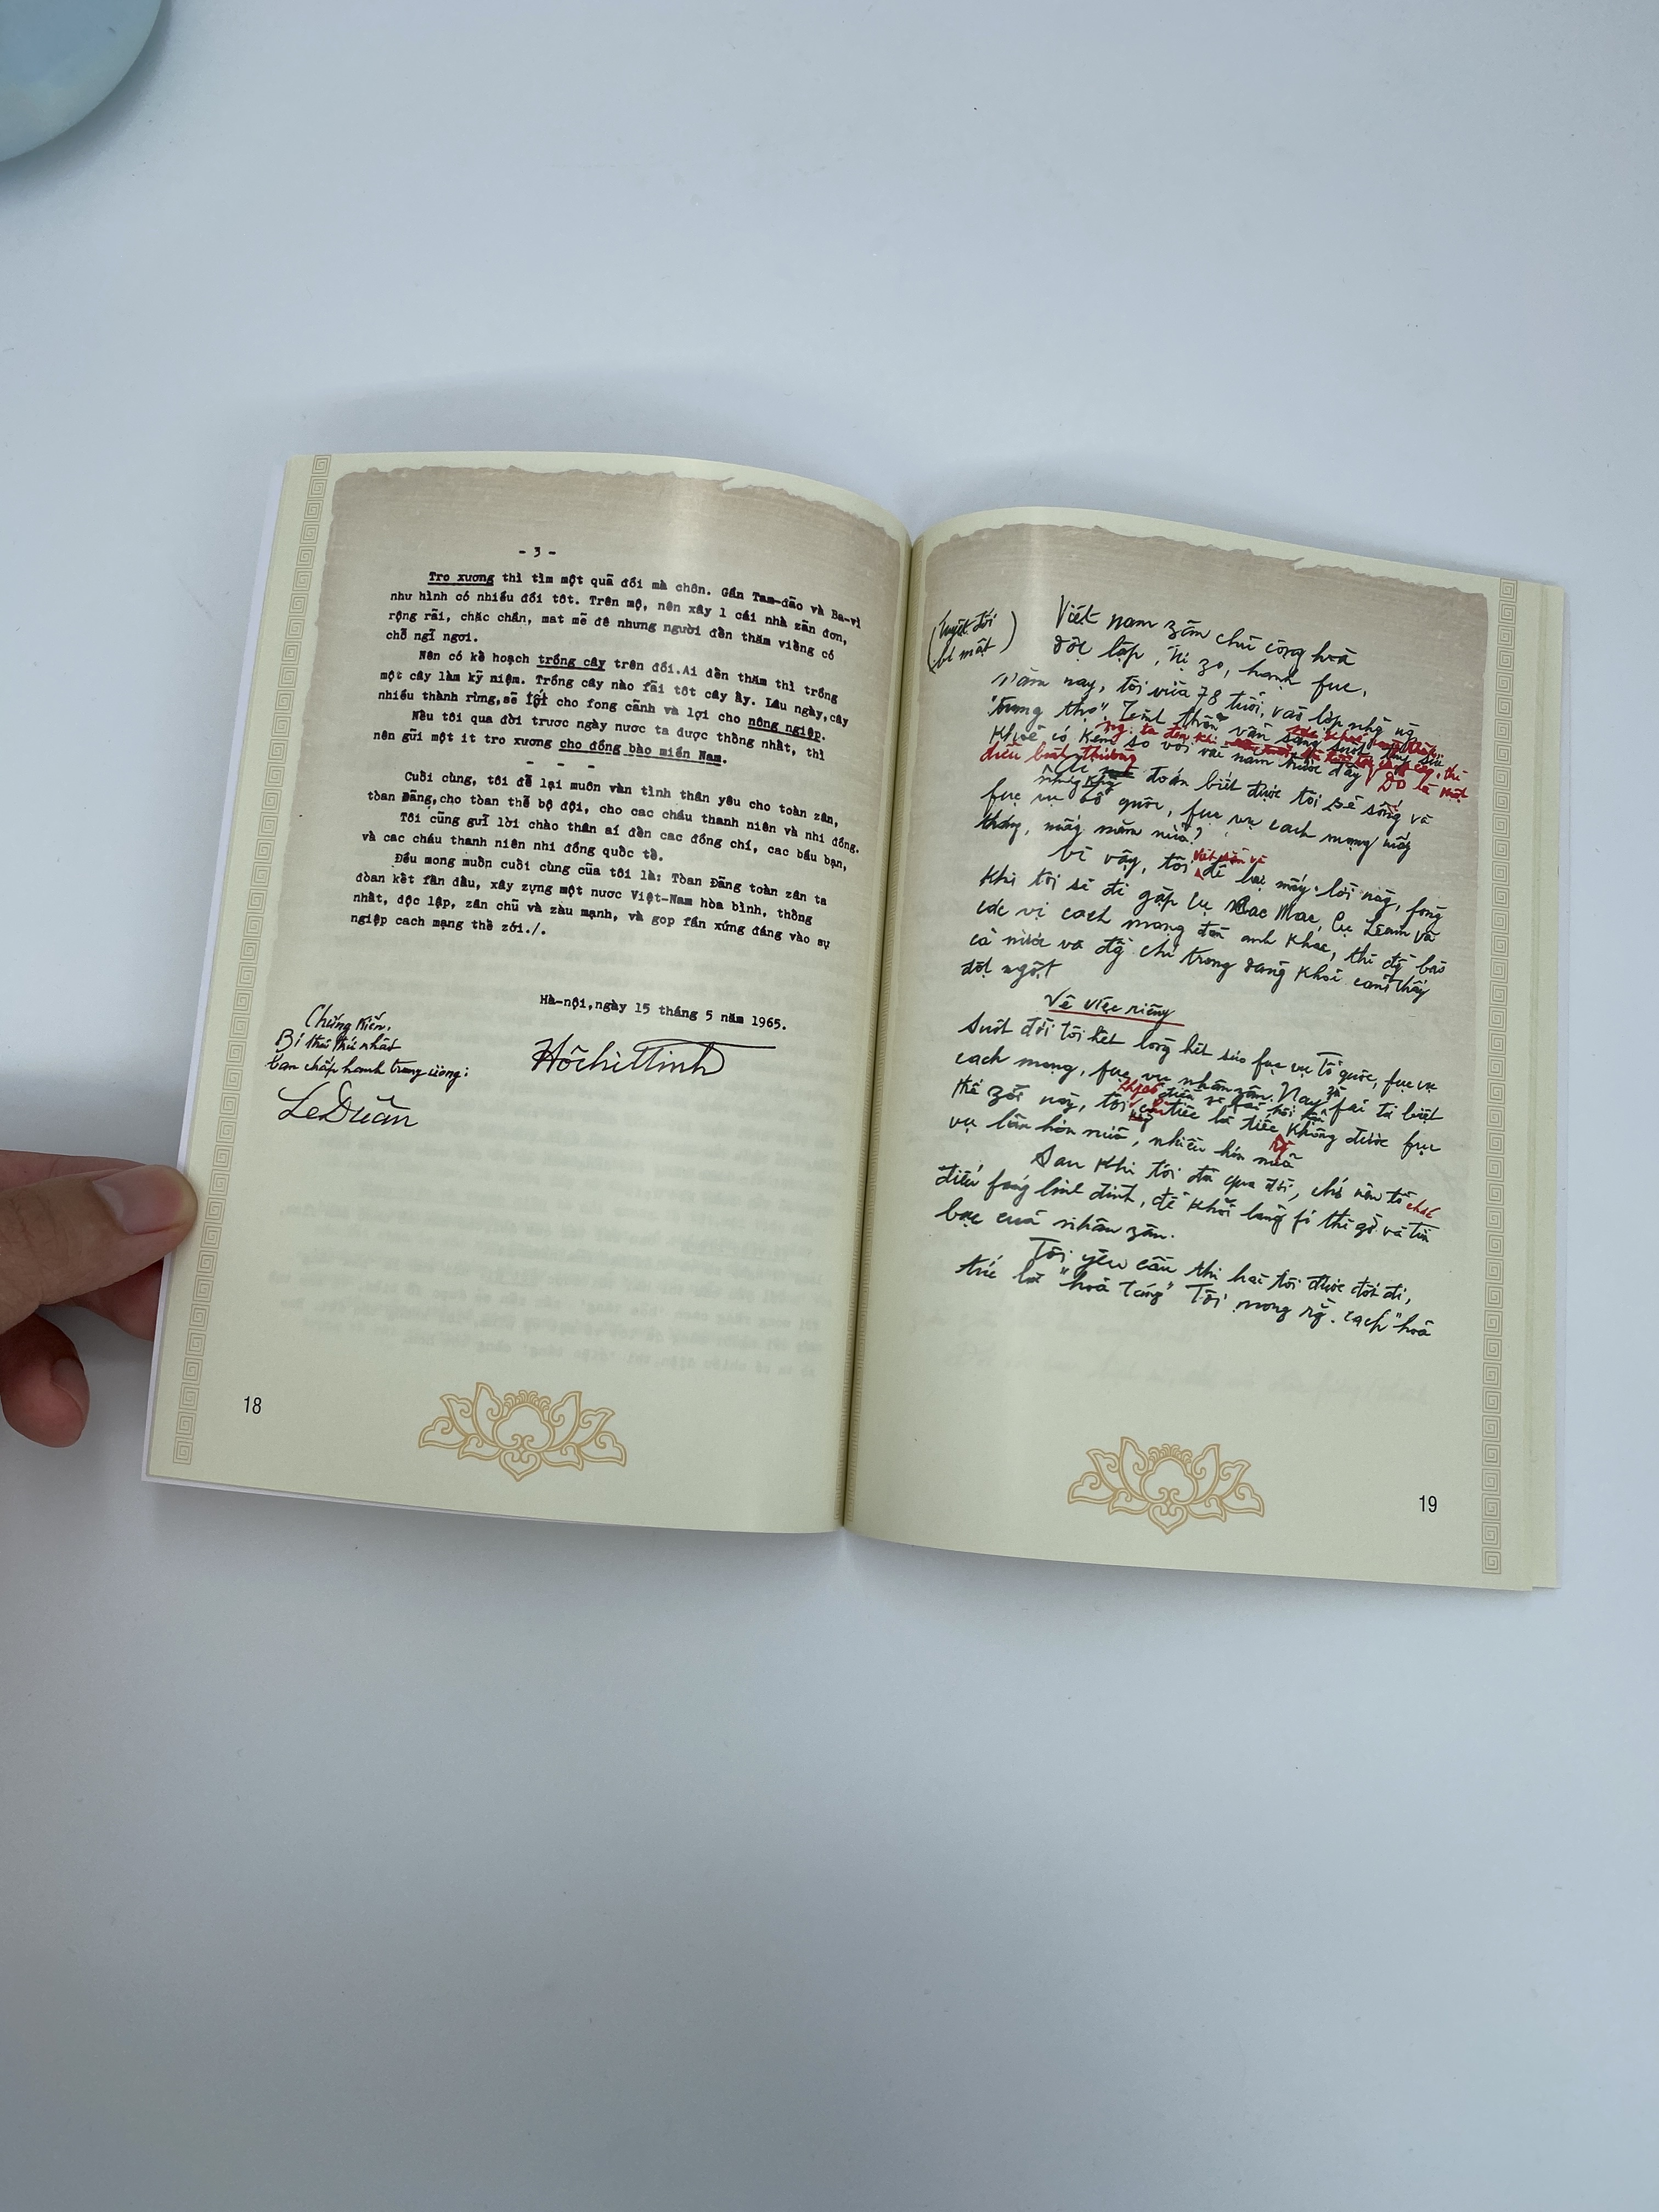 - 3 -
Tro xương thì tìm một quả đồi mà chôn. Gần Tam-đảo và Ba-vì
như hình có nhiều đồi tôt. Trên mộ, nên xây 1 cái nhà zản đơn,
rộng rãi, chăc chắn, mat mẽ để nhưng người đến thăm viếng có
chỗ ngỉ ngơi.
Nên có kế hoạch trồng cây trên đồi.Ai đến thăm thì trồng
một cây làm kỷ niệm. Trồng cây nào fải tôt cây ấy. Lâu ngày,cây
nhiều thành rừng,sẽ tốt cho fong cảnh và lợi cho nông ngiệp.
Nếu tôi qua đời trươc ngày nươc ta được thống nhất, thì
nên gửi một it tro xương cho đồng bào miền Nam.
- - -
Cuối cùng, tôi để lại muôn vàn tình thân yêu cho toàn zân,
tòan Đảng,cho tòan thể bộ đội, cho cac chấu thanh niên và nhi đồng.
Tôi cũng gưỉ lời chào thân aí đến các đồng chí, các bầu bạn,
và các cháu thanh niên nhi đồng quốc tế.
Đều mong muốn cuối cùng của tôi là: Tòan Đảng toàn zân ta
đòan kết fấn đấu, xây zựng một nươc Việt-Nam hòa bình, thống
nhất, độc lập, zân chủ và zàu mạnh, và gop fần xứng đáng vào sự
ngiệp cach mạng thế zới./.
Hà-nội,ngày 15 tháng 5 năm 1965.
Chứng kiến.
Bí thư thứ nhất
ban chấp hành trung ương:
Hồ chí Minh
Lê Duẩn
18
(Tuyệt đối
bí mật)
Việt nam zân chủ cộng hoà
độc lập, tự zo, hạnh fuc,
Năm nay, tôi vừa 78 tuổi, vào lớp nhữg ng
"trung thọ". Tinh thần vẫn sáng suốt, tuy sức
khoẻ có kém so với vài năm trước đây
điều bình thường
toán biết được tôi sẽ sống và
fuc vụ tổ quốc, fuc vụ cach mạng mấy
tháng, mấy năm nữa?
Vì vậy, tôi viết sẵn và để lại mấy lời này, fòng
khi tôi sẽ đi gặp cụ Mac, cụ Lênin và
các vị cach mạng đàn anh khac, thì đg bào
cả nước và đg chí trong đảng khỏi cảm thấy
đột ngột
Về việc riêng
Suốt đời tôi hết lòng hết sức fục vụ Tổ quốc, fuc vụ
cach mạng, fuc vụ nhân zân. Nay zù fải từ biệt
thế zới này, tôi không có điều gì fải hối hận, chỉ tiếc là tiếc không được fuc
vụ lâu hơn nữa, nhiều hơn nữa
Sau khi tôi đã qua đời, chớ nên tổ chức
điếu fúng linh đình, để khỏi lãng fí thì giờ và tiền
bạc của nhân zân.
Tôi yêu cầu thi hài tôi được đốt đi,
tức là "hoả táng" Tôi mong rằg cach "hoả
19